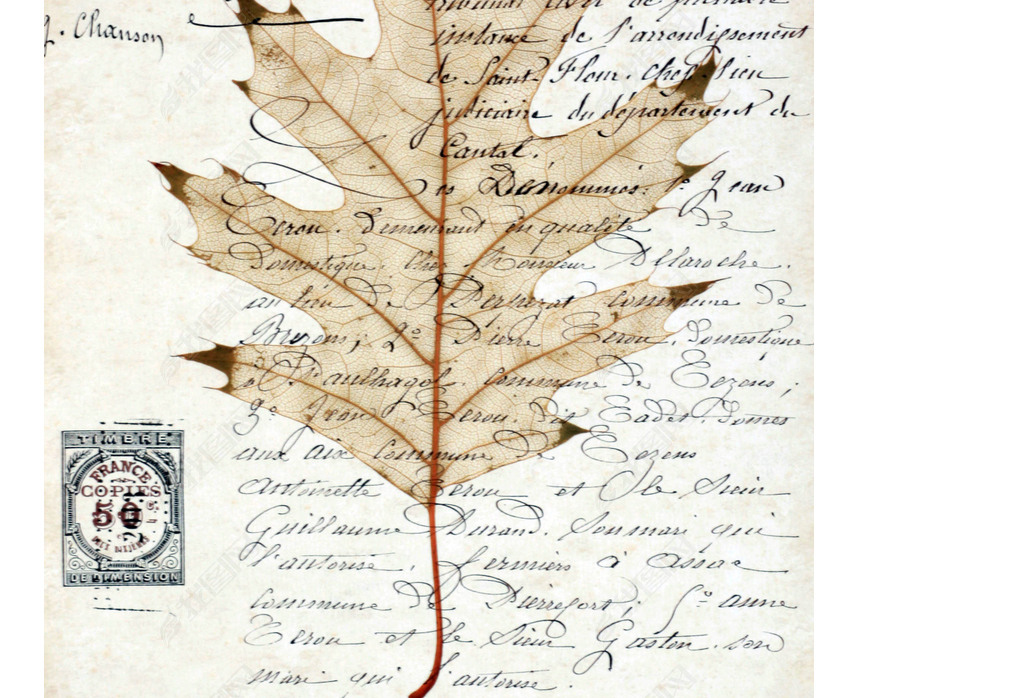 g. Chanson
Tribunal civil de première
instance de l'arrondissement
de Saint-Flour. chef-lieu
judiciaire du département du
Cantal.
Les Dénommés: 1º Jean
Terou. Demeurant en qualité de
Domestique, chez Monsieur Delaroche.
au lieu de commune de
Brezons; 2º Pierre Terou, Domestique
à Paulhagol, commune de Cezens;
3º Jean Terou, dit Cadet. Domes
aux commune de Cezens
Antoinette Terou et le Sieur
Guillaume Durand. Son mari qui
l'autorise, fermiers à
commune de Pierrefort; 5º anne
Terou et le Sieur Gaston. son
mari qui l'autorise.
TIMBRE
FRANCE
COPIES
50
DE DIMENSION